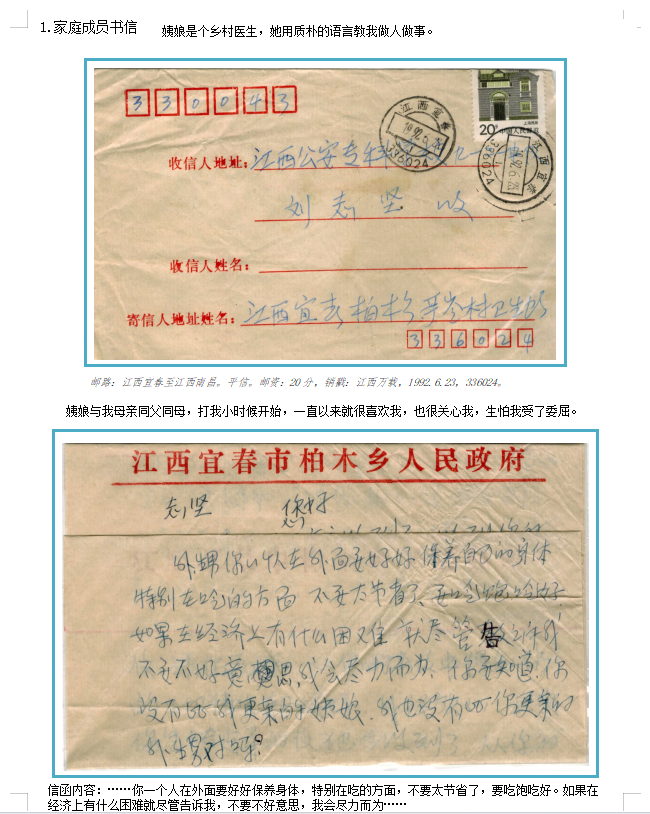 1.家庭成员书信
姨娘是个乡村医生，她用质朴的语言教我做人做事。
330043
江西宜春
1992.6.23
336024
20分
中国人民邮政
收信人地址：江西公安专科
刘志坚 收
收信人姓名：
寄信人地址姓名：江西宜春柏木 村卫生所
336024
邮路：江西宜春至江西南昌。平信。邮资：20分，销戳：江西万载，1992.6.23，336024。
姨娘与我母亲同父同母，打我小时候开始，一直以来就很喜欢我，也很关心我，生怕我受了委屈。
江西宜春市柏木乡人民政府
志坚 你好
外甥你个人在外面要好好保养自己的身体
特别在吃的方面 不要太节省了、要吃饱吃好
如果在经济上有什么困难 就尽管告诉我
不要不好意思，我会尽力而为、你要知道，你
没有比我更亲的姨娘，我也没有比你更亲的
外甥对吗？
信函内容：……你一个人在外面要好好保养身体，特别在吃的方面，不要太节省了，要吃饱吃好。如果在
经济上有什么困难就尽管告诉我，不要不好意思，我会尽力而为……